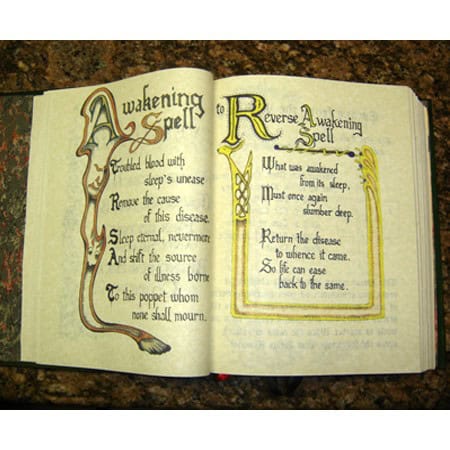 Awakening
Spell
Troubled blood with
sleep's unease
Remove the cause
of this disease.
Sleep eternal, nevermore
And shift the source
of illness borne
To this poppet whom
none shall mourn.
to Reverse Awakening
Spell
What was awakened
from its sleep,
Must once again
slumber deep.
Return the disease
to whence it came.
So life can ease
back to the same.